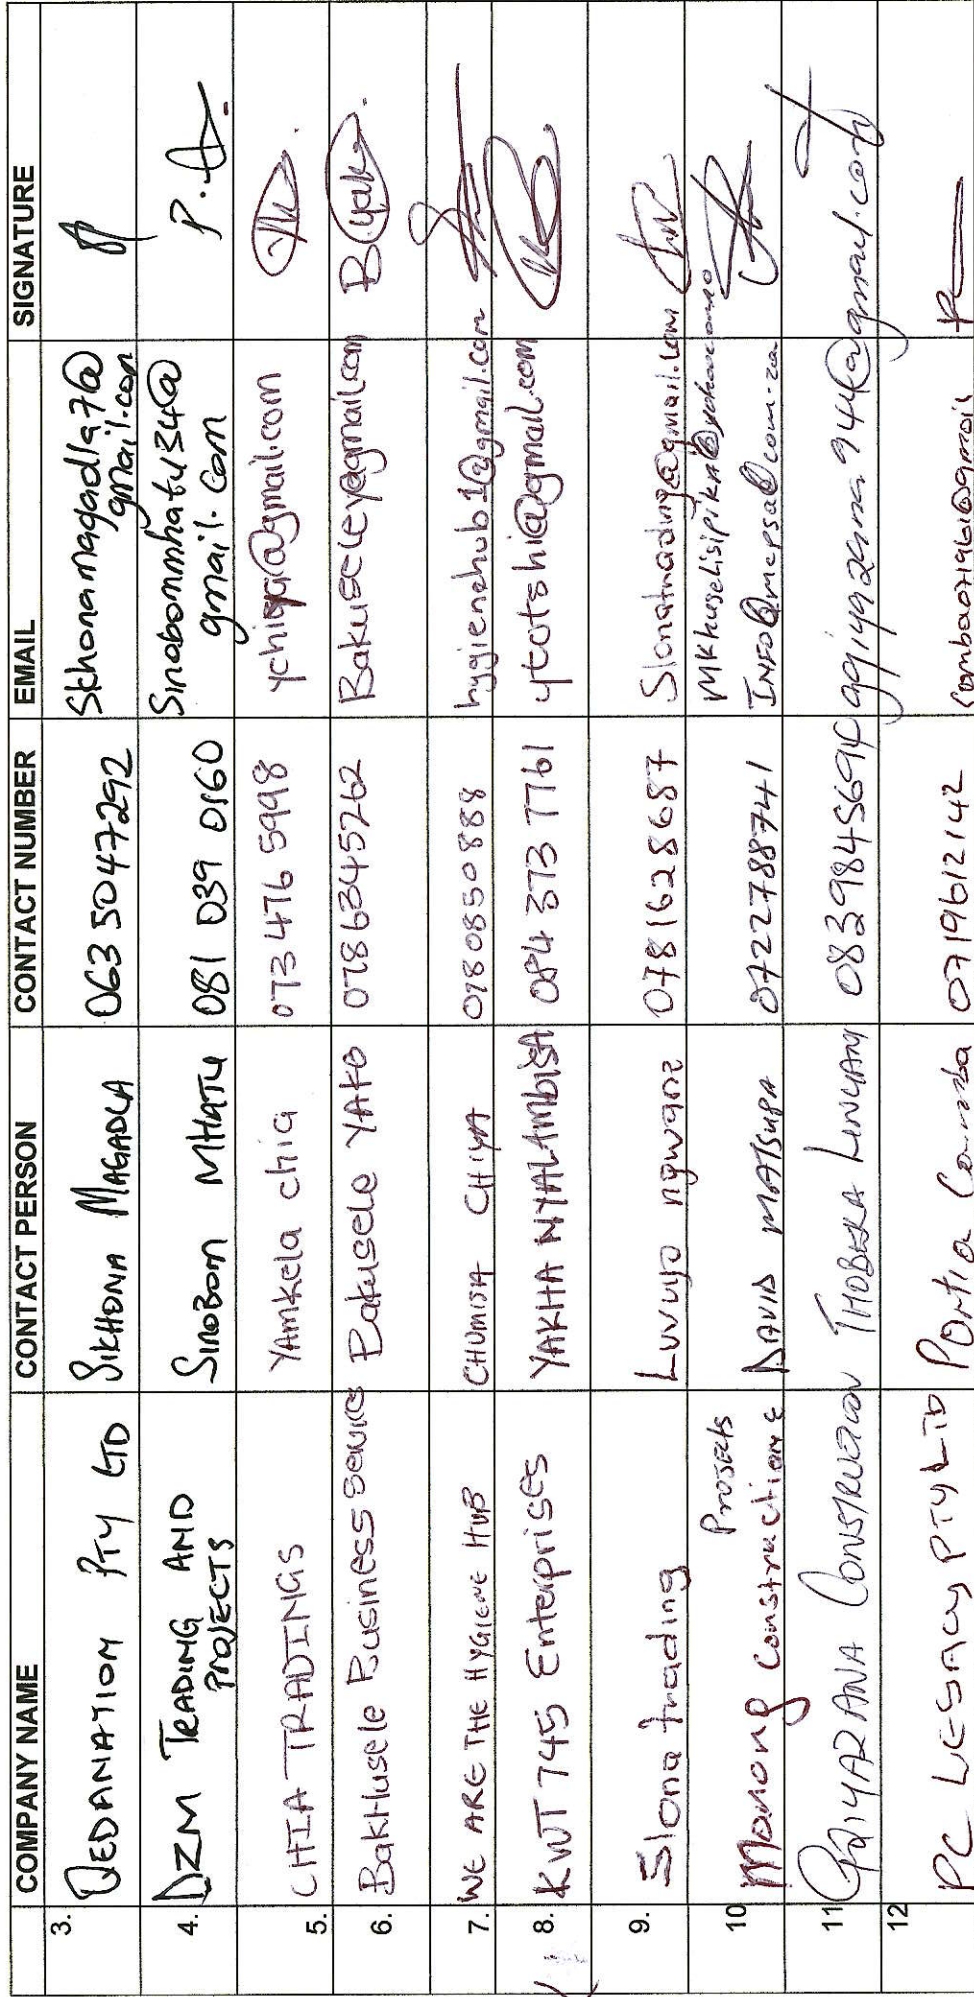 COMPANY NAME CONTACT PERSON CONTACT NUMBER EMAIL SIGNATURE
3. DEDANATION PTY LTD SIKHONA MAGADLA 063 5047292 Skhonamagadla97@
gmail.com
4. DZM TRADING AND
PROJECTS SINOBOM MHATU 081 039 0160 Sinabommhatu34@
gmail.com P.A
5. CHIA TRADINGS YAMKELA chia 073 476 5998 ychiya@gmail.com
6. BaKHusele Business Services Bakusele YAKO 0786345262 Bakuseley@gmail.com Byako
7. WE ARE THE HYGIENE HUB CHUMISA CHIYA 0780850888 hygienehub1@gmail.com
8. KWT 745 Enterprises YAKHA NYALAMBISA 084 373 7761 ytotshi@gmail.com
9. Slona trading Luvuyo ngwane 0781628687 Slonatrading@gmail.com
10 Projects
Monong Construction & DAVID MATSHPA 0722788741 Mkhuselisipika@
INFO@mcpsa@com.za
11 CONSTRUCTION THOBEKA 0839845694 @gmail.com
12 PC LEGACY PTY LTD Portia Comba 0719612142 Comba0719612@gmail